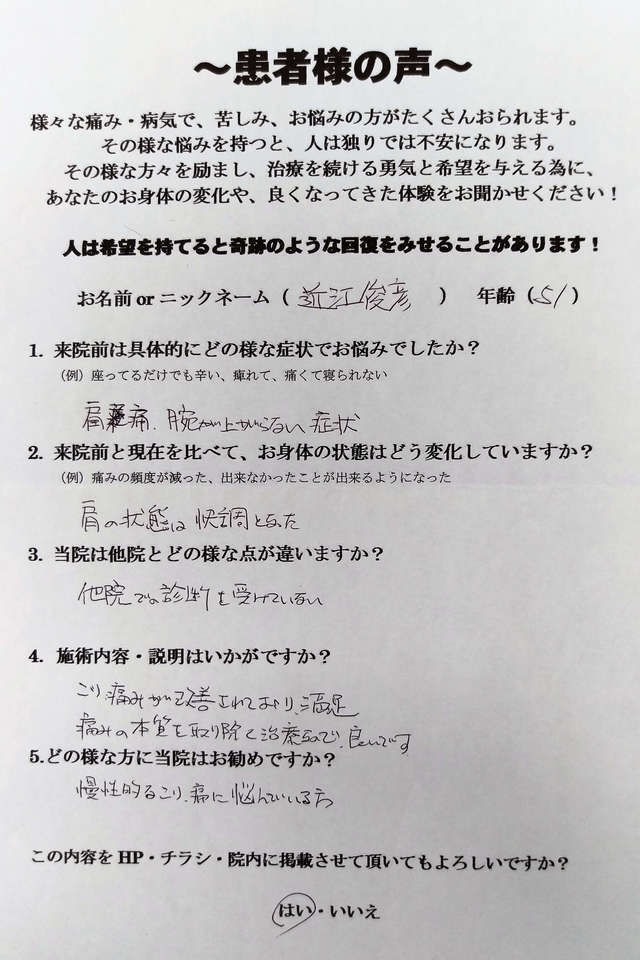 ～患者様の声～
様々な痛み・病気で、苦しみ、お悩みの方がたくさんおられます。
その様な悩みを持つと、人は独りでは不安になります。
その様な方々を励まし、治療を続ける勇気と希望を与える為に、
あなたのお身体の変化や、良くなってきた体験をお聞かせください！
人は希望を持てると奇跡のような回復をみせることがあります！
お名前 or ニックネーム（近江俊彦）　年齢（51）
1. 来院前は具体的にどの様な症状でお悩みでしたか？
（例）座ってるだけでも辛い、痺れて、痛くて寝られない
肩痛、腕が上がらない症状
2. 来院前と現在を比べて、お身体の状態はどう変化していますか？
（例）痛みの頻度が減った、出来なかったことが出来るようになった
肩の状態は快調となった
3. 当院は他院とどの様な点が違いますか？
他院での診断を受けていない
4. 施術内容・説明はいかがですか？
こり、痛みが改善されており、満足
痛みの本質を取り除く治療なので、良いです
5.どの様な方に当院はお勧めですか？
慢性的なこり、痛に悩んでいる方
この内容を HP・チラシ・院内に掲載させて頂いてもよろしいですか？
はい・いいえ